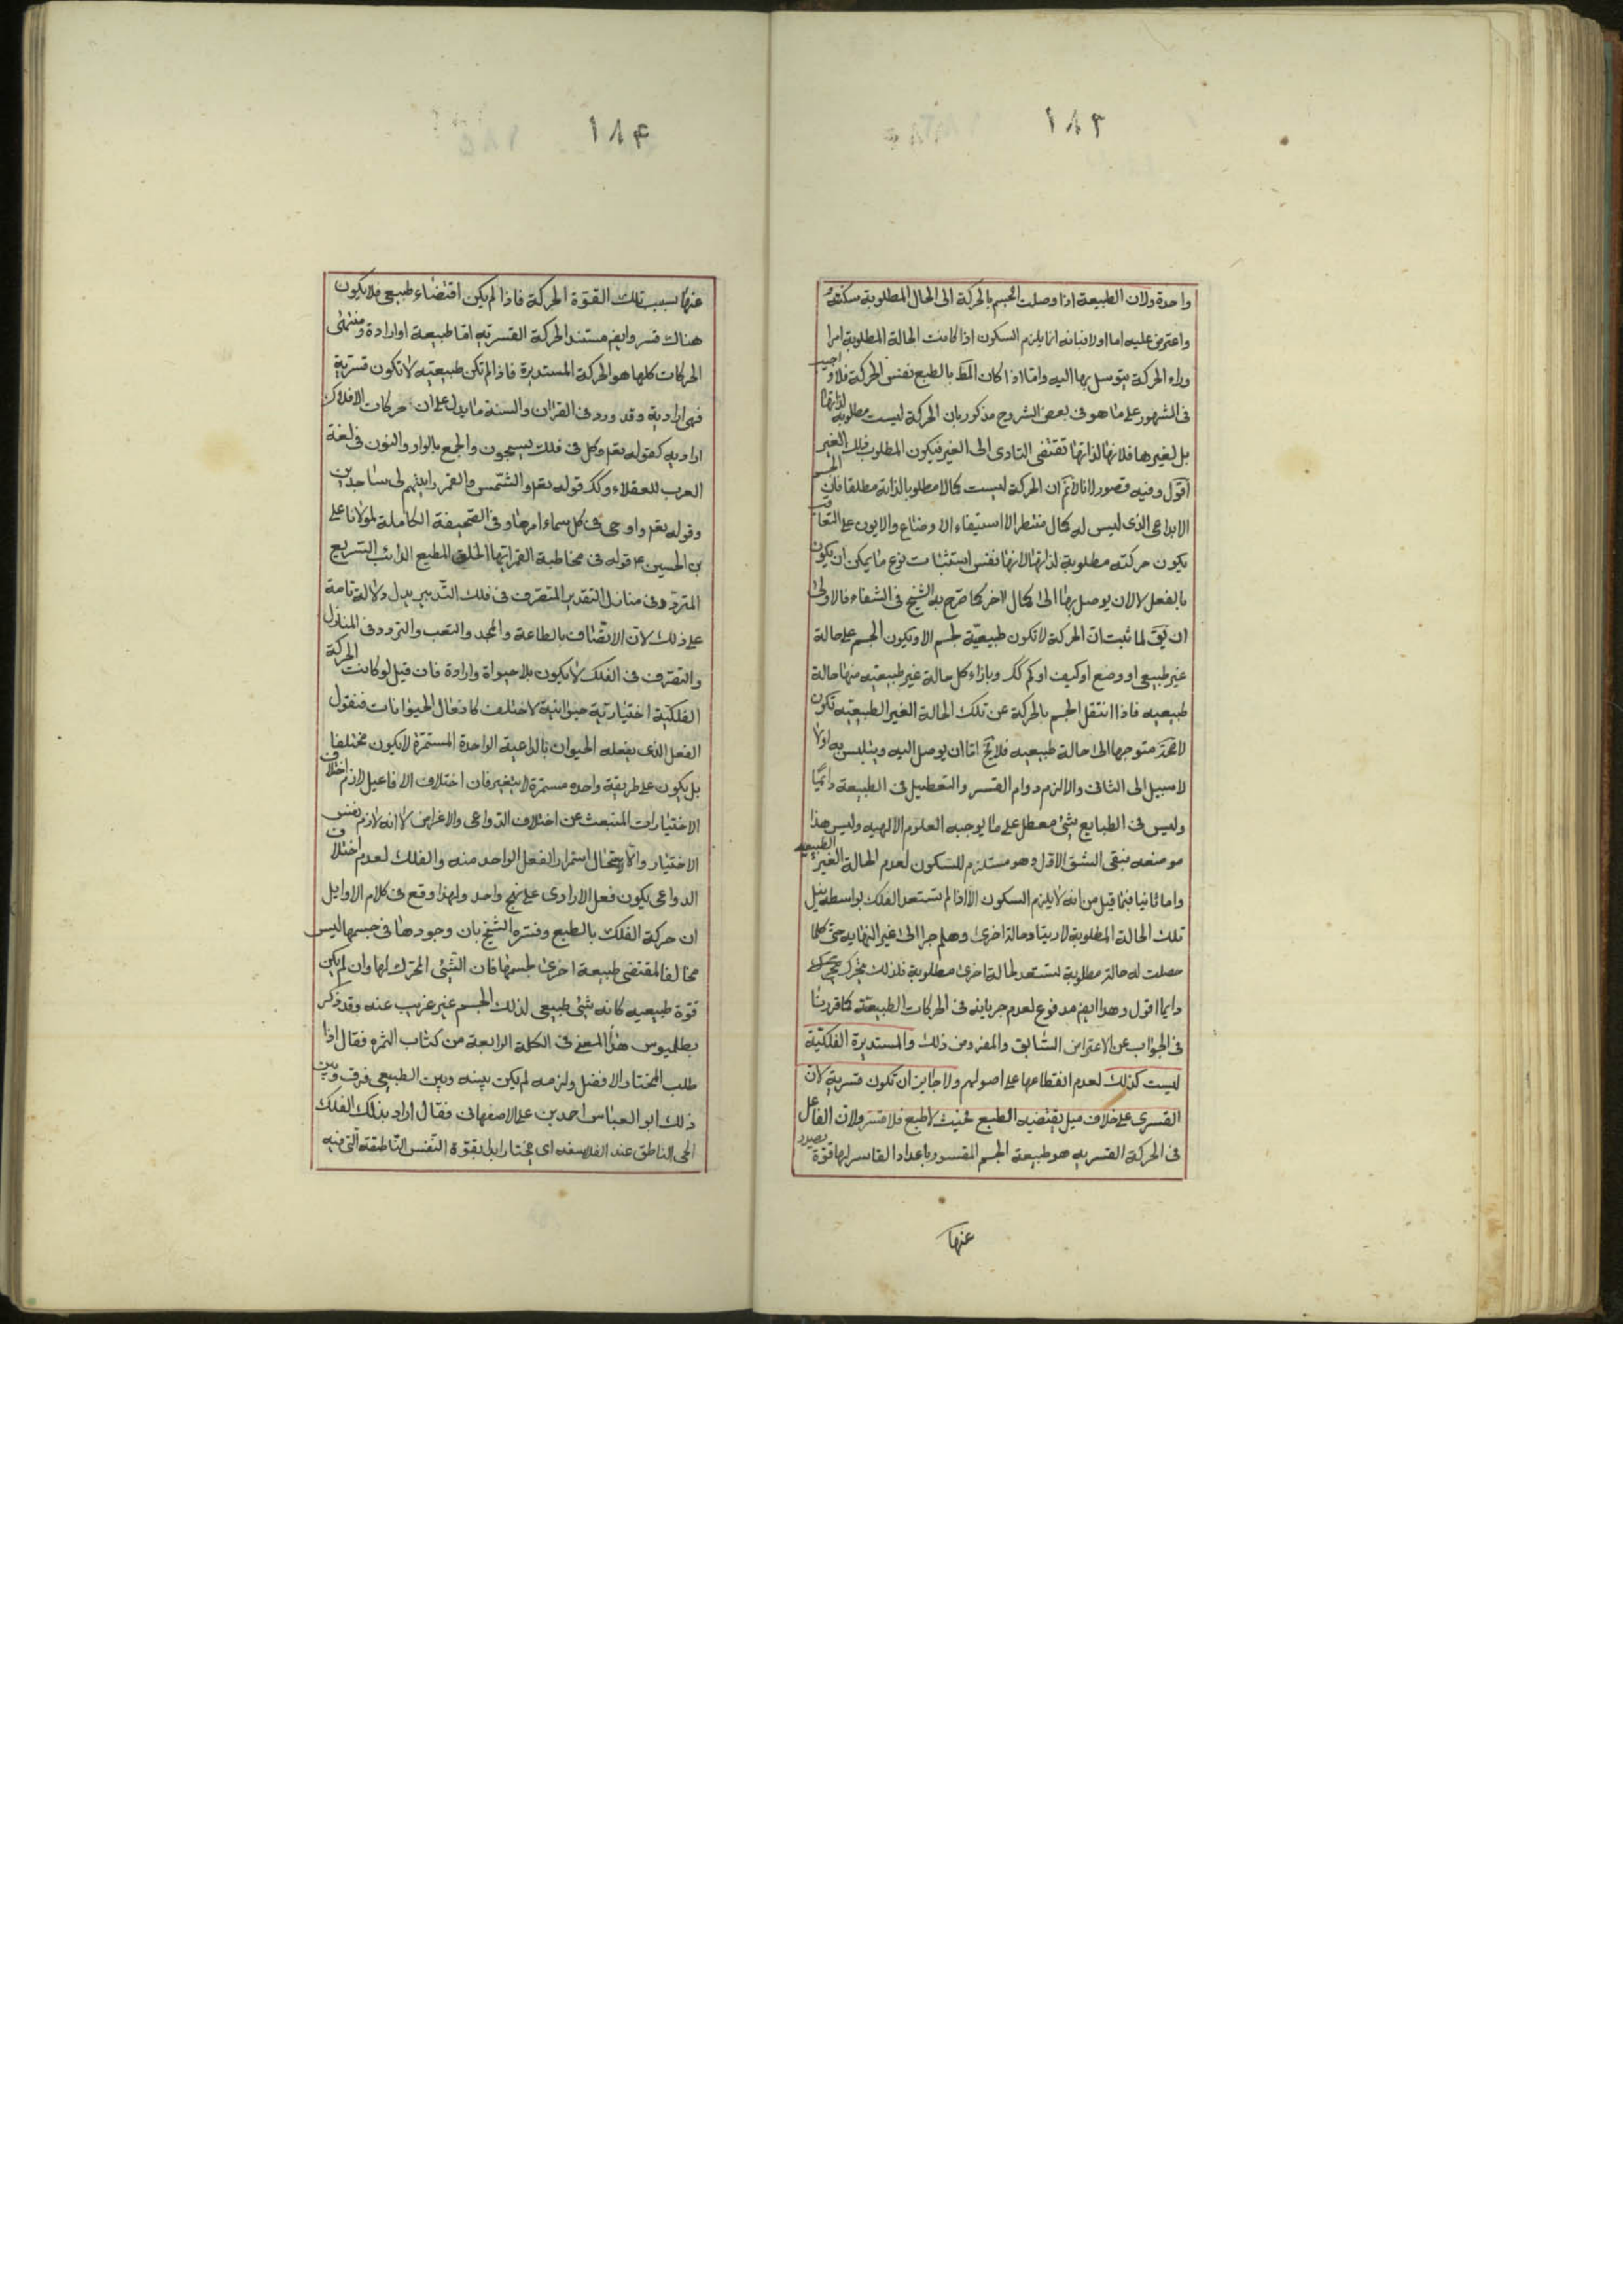 ١٨٣
واحدة ولان الطبيعة اذا وصلت الجسم بالحركة الى الحال المطلوبة سكنته
واعترض عليه اما اولا فبانه انما يلزم السكون اذا كانت الحالة المطلوبة امرا
وراء الحركة يتوسل بها اليه واما اذا كان المط بالطبع نفس الحركة فلا واجيب
فى المشهور على ما هو فى بعض الشروح مذكور بان الحركة ليست مطلوبة لذاتها
بل لغيرها فلانها لذاتها تقتضى التادى الى الغير فيكون المطلوب ذلك الغير
اقول وفيه قصور لانا لا نم ان الحركة ليست كمالا مطلوبا لذاته مطلقا فان الجسم
الابداعى الذى ليس له كمال منتظر الا استيفاء الاوضاع والايون على التعاقب
يكون حركته مطلوبة لذاتها لانها نفس استثبات نوع ما يمكن ان يكون
بالفعل لا لان يوصل بها الى كمال اخر كما صرح به الشيخ فى الشفاء فالاولى
ان يق لما ثبت ان الحركة لا تكون طبيعية لجسم الا ويكون الجسم على حالة
غير طبيعى او وضع او كيف او كم كك وبازاء كل حالة غير طبيعيه منها حالة
طبيعيه فاذا انتقل الجسم بالحركة عن تلك الحالة الغير الطبيعيه تكون
لا محة متوجها الى حالة طبيعيه فلا يخ اما ان يوصل اليه ويتلبس به اولا
لا سبيل الى الثانى والا لزم دوام القسر والتعطيل فى الطبيعة دائميا
وليس فى الطبايع شئ معطل على ما يوجبه العلوم الالهيه وليس هذا
موضعه فبقى الشق الاول وهو مستلزم للسكون لعدم الحالة الغير الطبيعيه
واما ثانيا فبما قيل من انه لا يلزم السكون الا اذا لم تستعد الفلك بواسطة نيل
تلك الحالة المطلوبة لا ريثا وحالة اخرى وهلم جرا الى غير النهايه حتى كلما
حصلت له حالة مطلوبة لستعد لحالة اخرى مطلوبة فلذلك يتحرك
دايما اقول وهذا ايض مدفوع لعدم جريانه فى الحركات الطبيعيه كما قررنا
فى الجواب عن الاعتراض السابق والمفروض ذلك والمستديرة الفلكية
ليست كذلك لعدم انقطاعها على اصولهم ولا جايز ان تكون قسرية لان
القسرى على خلاف ميل يقتضيه الطبع فحيث لا طبع فلا قسر ولان الفاعل
فى الحركة القسريه هو طبيعة الجسم المقسور باعداد القاسر لها قوة يصدر
عنها
١٨۴
عنها بسبب تلك القوة الحركة فاذا لم يكن اقتضاء طبيعى فلا يكون
هناك قسر وايض مستند الحركة القسريه اما طبيعة او ارادة ومنتهى
الحركات كلها هو الحركة المستديرة فاذا لم تكن طبيعيه لا تكون قسرية
فهى ارادية وقد ورد فى القران والسنة ما يدل على ان حركات الافلاك
اراديه كقوله تعم وكل فى فلك يسبحون والجمع بالواو والنون فى لغة
العرب للعقلاء وكك قوله تعم والشمس والقمر رايتهم لى ساجدين
وقوله تعم واوحى فى كل سماء امرها وفى الصحيفة الكاملة لمولانا على
بن الحسين ع قوله فى مخاطبة القمر ايتها الخلق المطيع الدائب السريع
المتردد فى منازل التقدير المتصرف فى فلك التدبير يدل دلالة تامة
على ذلك لان الاتصاف بالطاعة والجد والتعب والتردد فى المنازل
والتصرف فى الفلك لا يكون بلا حيواة وارادة فان قيل لو كانت الحركة
الفلكية اختيارية حيوانية لاختلف كافعال الحيوانات فنقول
الفعل الذى يفعله الحيوان بالداعية الواحدة المستمرة لا يكون مختلفا
بل يكون على طريقة واحده مستمرة لا يتغير فان اختلاف الافاعيل لازم اختلاف
الاختيارات المنبعث عن اختلاف الدواعى والاغراض لا انه لازم نفس
الاختيار والا لاستحال استمرار الفعل الواحد منه والفلك لعدم اختلاف
الدواعى يكون فعل الارادى على نهج واحد ولهذا وقع فى كلام الاوايل
ان حركة الفلك بالطبع وفسره الشيخ بان وجودها فى جسمها ليس
مخالفا لمقتضى طبيعة اخرى لجسمها فان الشئ المحرك لها وان لم يكن
قوة طبيعيه كانه شئ طبيعى لذلك الجسم غير غريب عنه وقد ذكر
بطلميوس هذا المعنى فى الكلة الرابعة من كتاب الثمره فقال اذا
طلب المختار الافضل ولزمه لم يكن بينه وبين الطبيعى فرق وبين
ذلك ابو العباس احمد بن على الاصفهانى فقال اراد بذلك الفلك
الحى الناطق عند الفلاسفه اى مختار ابدا بقوة النفس الناطقة التى فيه